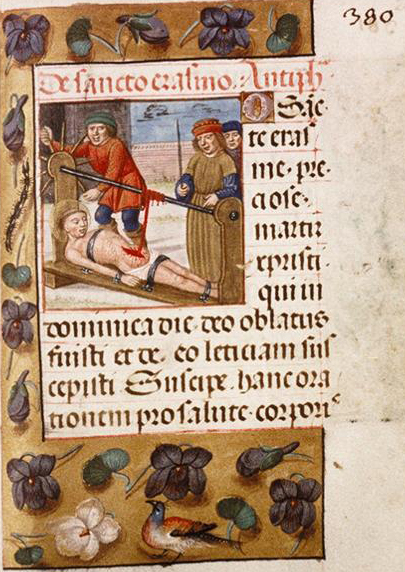 380
De sancto erasmo. Antiph
O Sāc
te eras
me. pre
ciose.
martir
xpristi.
qui in
dominica die. deo oblatus
fuisti et de. eo leticiam sus
cepisti Suscipe. hanc ora
tionem pro salute. corpori